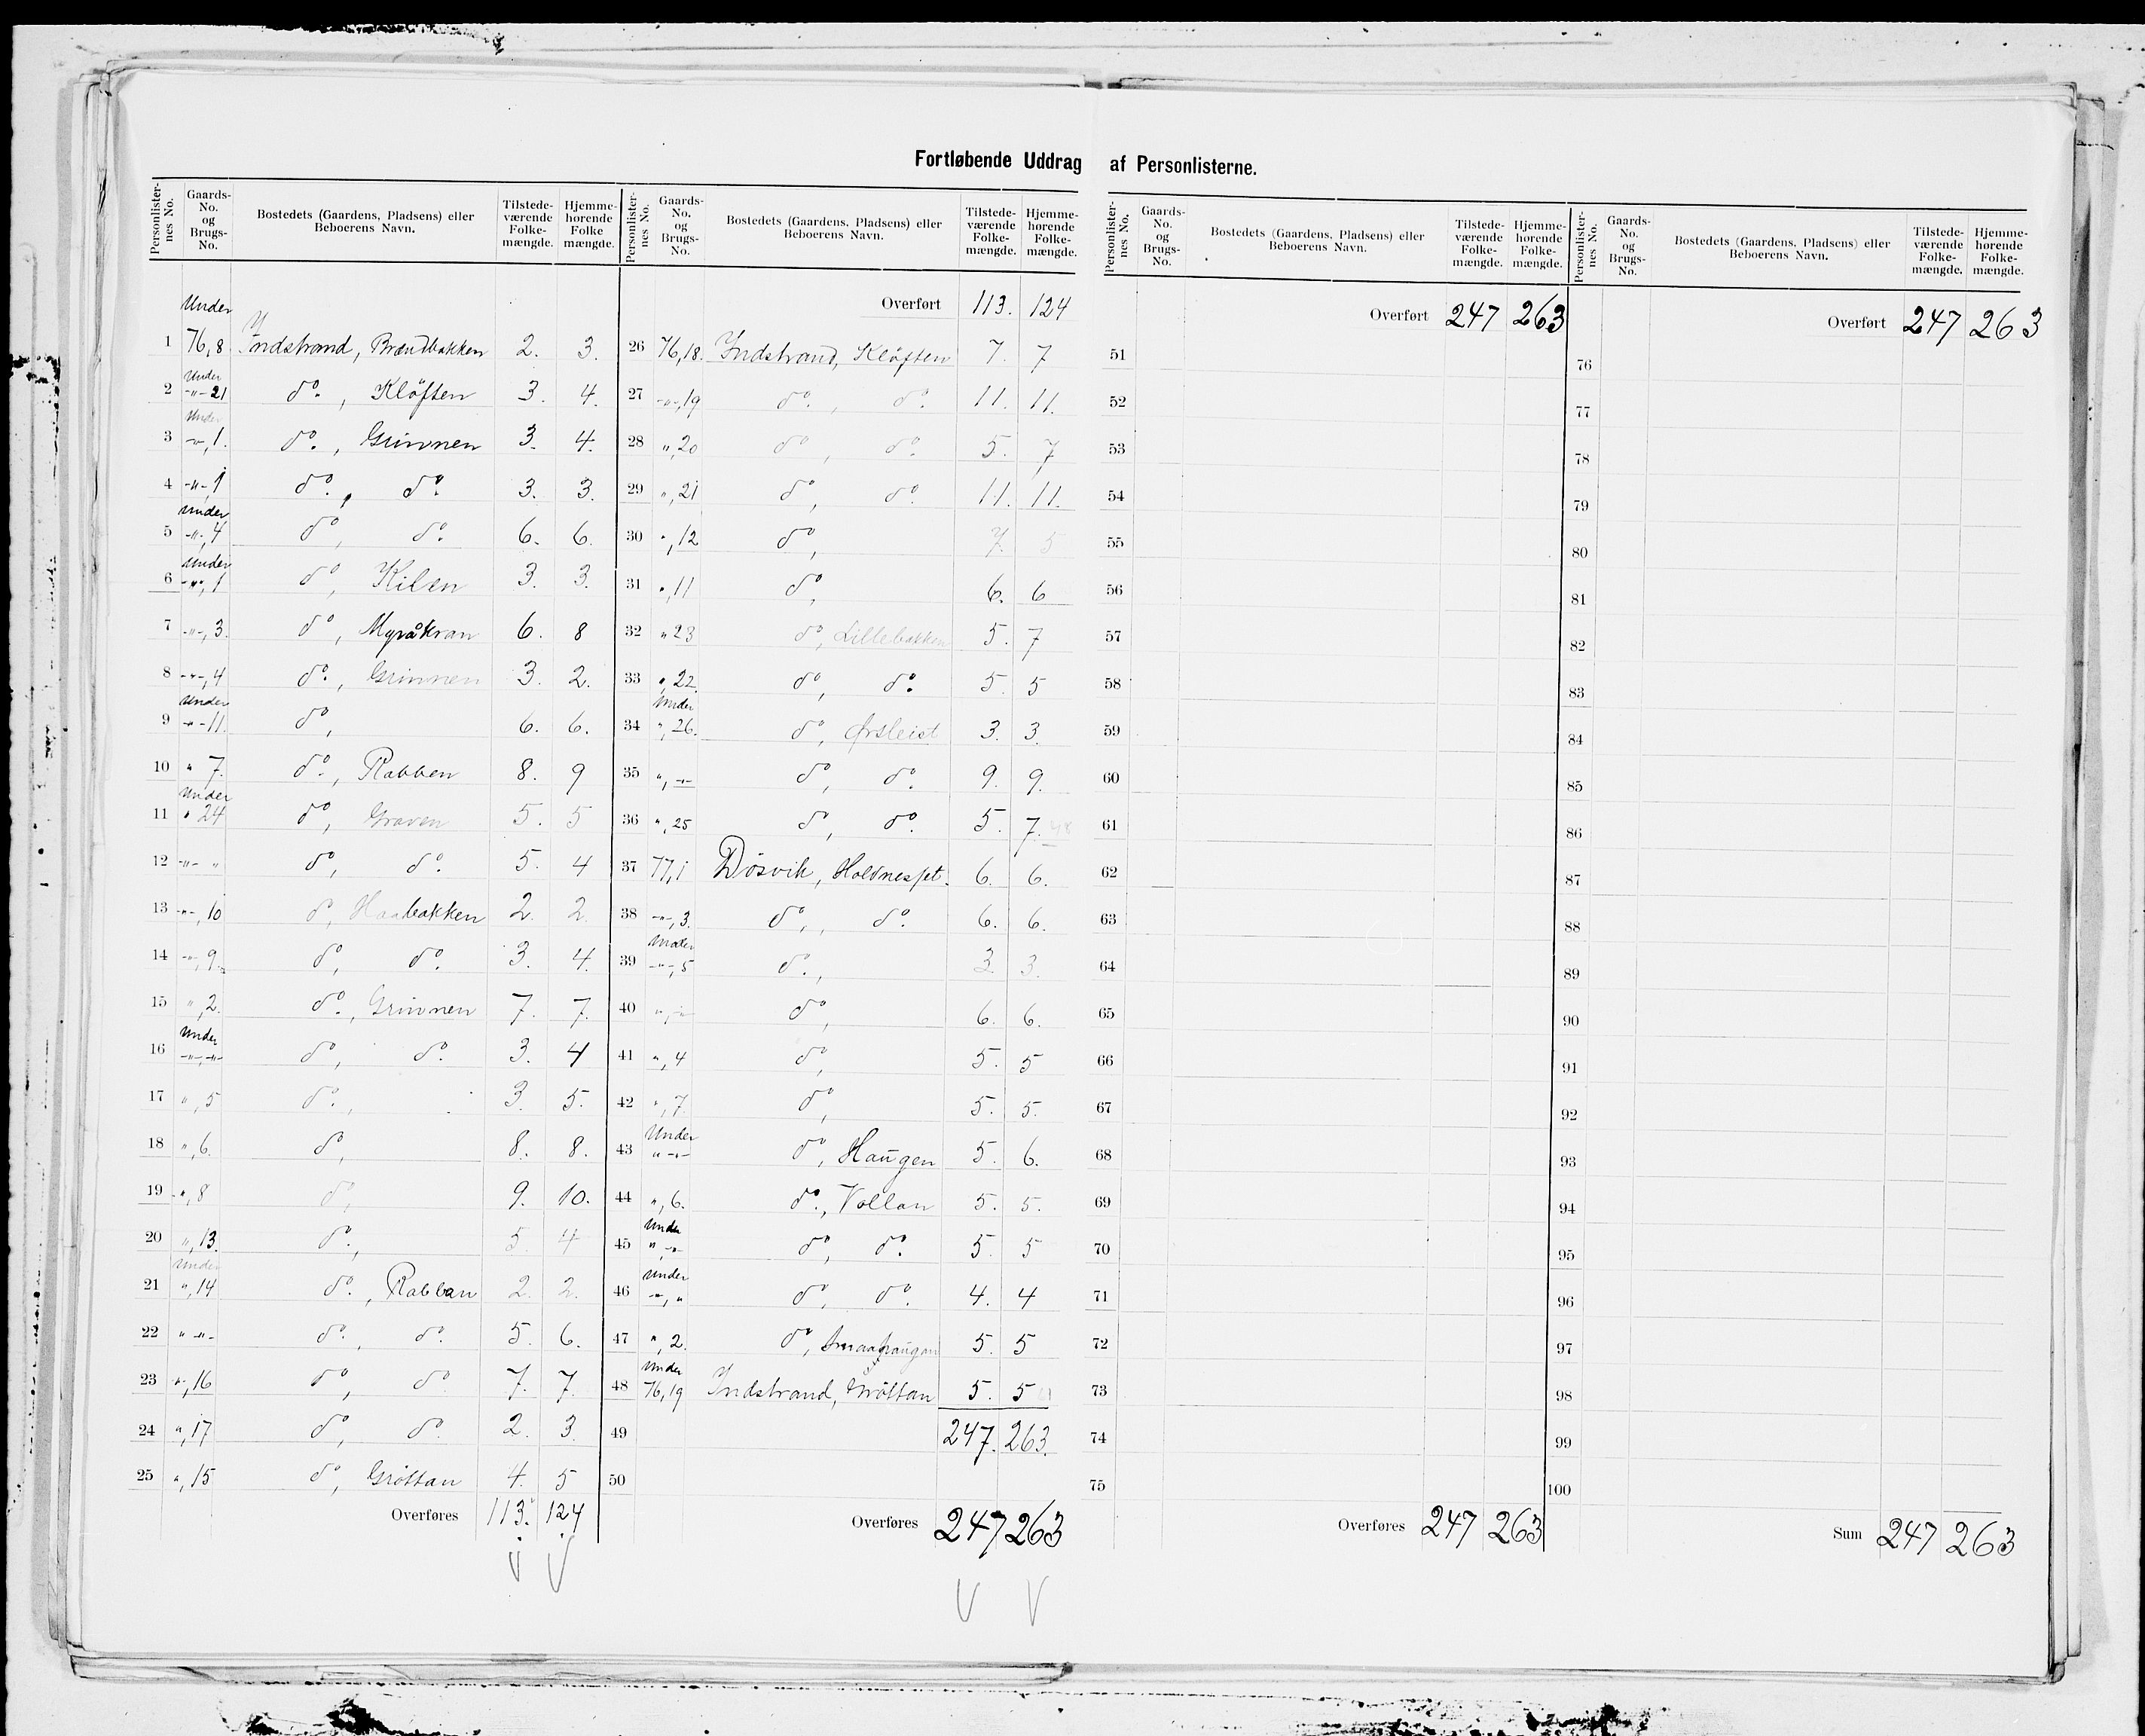 Fortløbende Uddrag af Personlisterne.
Personlister-nes No. Gaards-No. og Brugs-No. Bostedets (Gaardens, Pladsens) eller Beboerens Navn. Tilstede-værende Folke-mængde. Hjemme-hørende Folke mængde.
Under
1 76,8 Indstrand, Brændbakken 2. 3.
Under
2 -"- 21 do. , Kløften 3. 4.
Under
3 -"-, 1. do. , Grinnen 3. 4.
4 -"-, 1 do. , do. 3. 3.
Under
5 -"-, 4 do , do. 6. 6.
Under
6 -"-, 1 do , Kilen 3. 3.
7 -"-, 3. do , Myråkran 6. 8
8 -"-, 4 do. , Grinnen 3. 2.
Under
9 -"- 11. do , 6. 6.
10 " 7. do. , Rabben 8. 9
Under
11 " 24 do , Graven 5. 5
12 -"- " do , do. 5. 4
13 -"-, 10 do, Haabakken 2. 2.
14 -"-, 9. do , do. 3. 4.
15 ", 2. do. , Grinnen 7. 7.
Under
16 -"-, -"- do , do. 3. 4
17 ", 5 do. , 3. 5.
18 ", 6. do , 8. 8.
19 ", 8 do , 9. 10.
20 ", 13. do. , 5. 4
Under
21 ", 14 do. , Rabban 2. 2.
22 " -"- do. , do. 5. 6.
23 ", 16 do , do 7. 7.
24 ", 17 do , do. 2. 3.
25 ", 15 do , Grøttan 4. 5
Overføres 113. 124
Personlister-nes No. Gaards-No. og Brugs-No. Bostedets (Gaardens, Pladsens) eller Beboerens Navn. Tilstede-værende Folke-mængde. Hjemme-hørende Folke-mængde.
Overført 113. 124
26 76,18. Indstrand, Kløften 7. 7
27 -"-, 19 do. , do. 11. 11.
28 ", 20 do , do. 5. 7
29 ", 21 do , do. 11. 11.
30 ", 12 do , 7. 5
31 ", 11 do , 6. 6
32 " 23 do, Lillebakken 5. 7
33 ", 22. do , do. 5. 5
Under
34 ", 26. do, Ørsleist 3. 3.
35 ", -"- do , do. 9. 9.
36 ", 25 do , do. 5. 7.
37 77,1 Døsvik, Holdneset. 6. 6.
38 -"-, 3. do. , do. 6. 6.
Under
39 -"-, 5 do. , 3. 3.
40 ", -"- do , 6. 6.
41 ", 4 do , 5. 5
42 ", 7. do , 5. 5.
Under
43 " -"- do, Haugen 5. 6.
44 ", 6. do. , Vollan 5. 5.
Under
45 ", -"- do , do. 5. 5
Under
46 -"-, " do , do. 4. 4
47 ", 2. do, Smaahaugan 5. 5
Under
48 76,19 Indstrand, Grøttan 5. 5
49 247. 263.
50
Overføres 247 263
Personlister-nes No. Gaards-No. og Brugs-No. Bostedets (Gaardens, Pladsens) eller Beboerens Navn. Tilstede-værende Folke-mængde. Hjemme-hørende Folke-mængde.
Overført 247 263
51
52
53
54
55
56
57
58
59
60
61
62
63
64
65
66
67
68
69
70
71
72
73
74
75
Overføres 247 263
Personlister-nes No. Gaards-No. og Brugs-No. Bostedets (Gaardens, Pladsens) eller Beboerens Navn. Tilstede-værende Folke-mængde. Hjemme-hørende Folke-mængde.
Overført 247 263
76
77
78
79
80
81
82
83
84
85
86
87
88
89
90
91
92
93
94
95
96
97
98
99
100
Sum 247 263